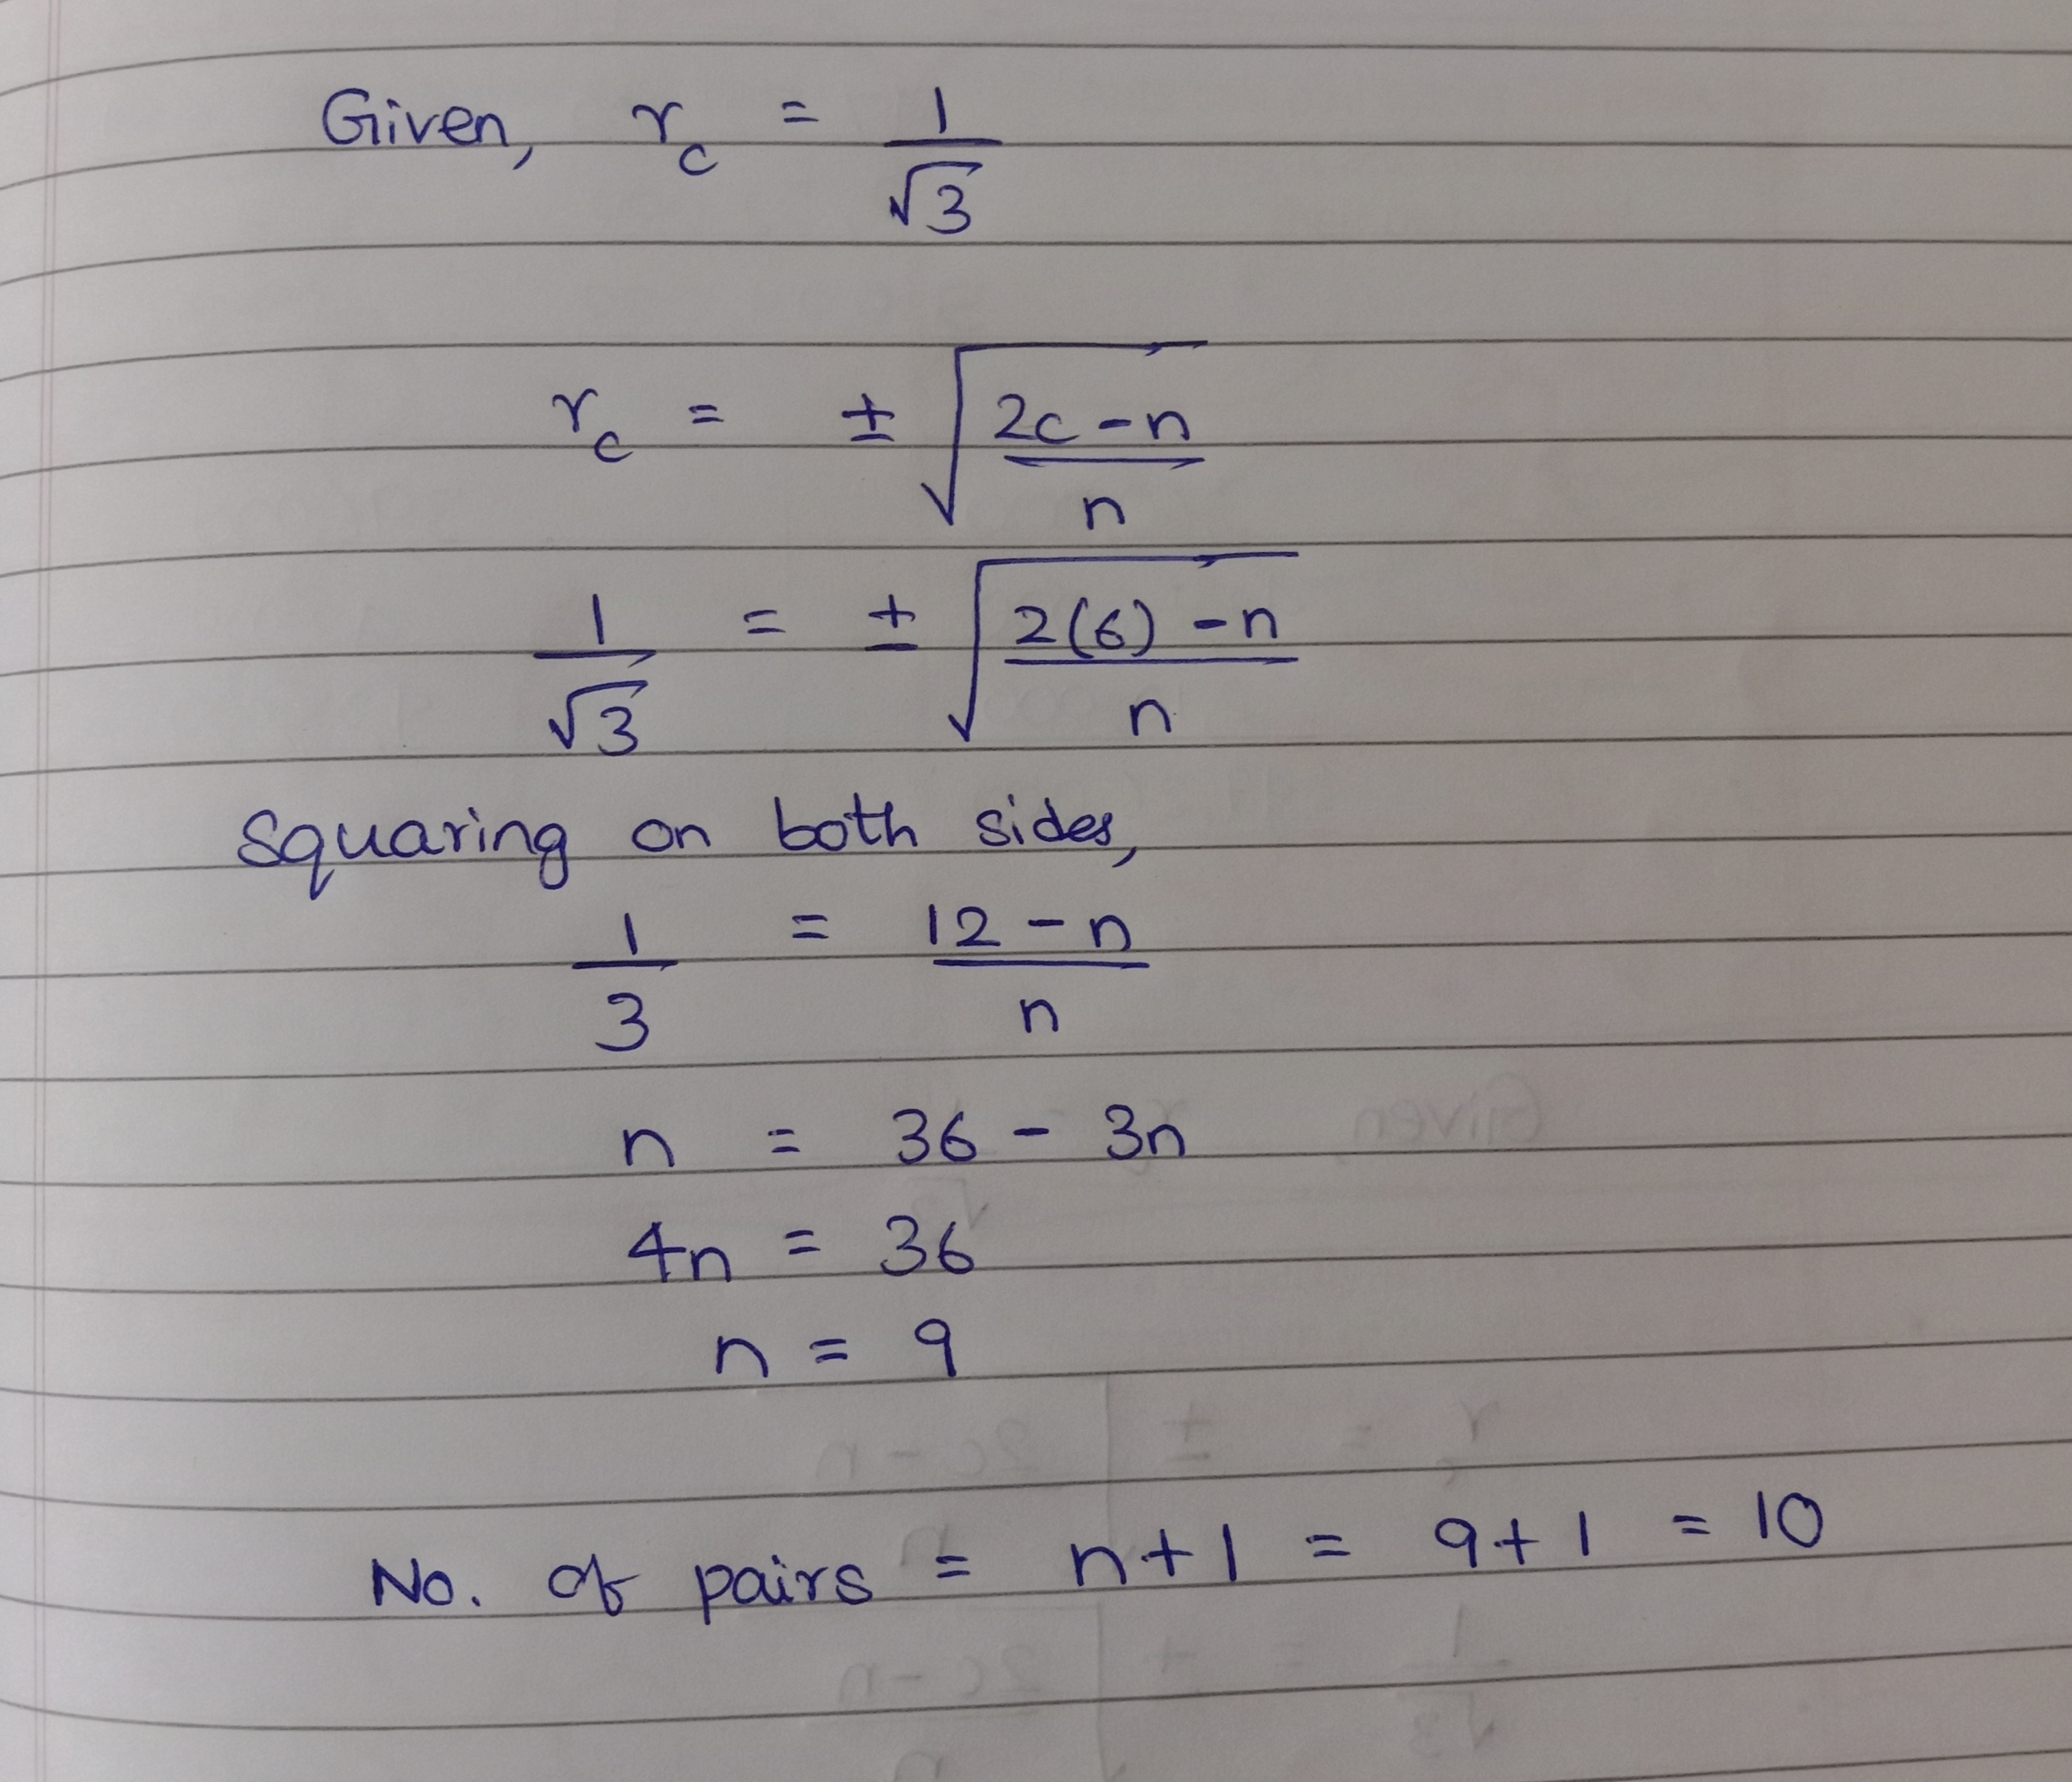 Given, r_c = 1/√3
r_c = ± √((2c - n)/n)
1/√3 = ± √((2(6) - n)/n)
Squaring on both sides,
1/3 = (12 - n)/n
n = 36 - 3n
4n = 36
n = 9
No. of pairs = n+1 = 9+1 = 10